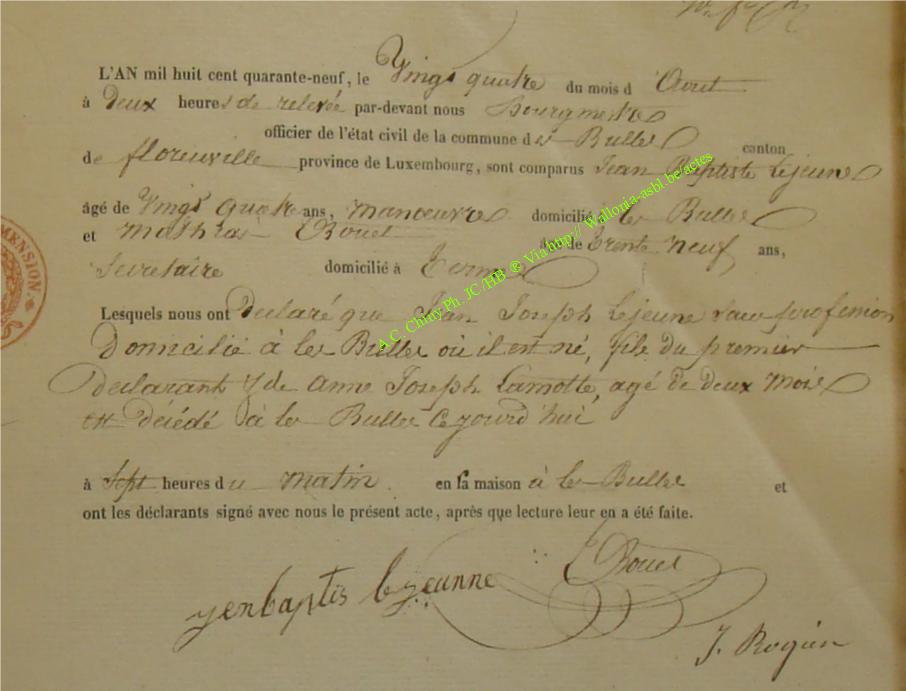 L'AN mil huit cent quarante-neuf, le Vingt quatre du mois d'Aout
à Deux heures de relevée par-devant nous Bourgmestre
officier de l'état civil de la commune des Bulles canton
de florenville province de Luxembourg, sont comparus Jean Baptiste Lejeune
âgé de Vingt quatre ans, manœuvre domicilié les Bulles
et mathias Bouet âgé de Trente neuf ans,
Secretaire domicilié à Termes
Lesquels nous ont Déclaré que Jean Joseph Lejeune sans profession
Domicilié à les Bulles où il est né, fils du premier
Declarant & de anne Joseph Lamotte, agé de deux mois
est décédé à les Bulles ce jourd'hui
à Sept heures du matin en sa maison à les Bulles et
ont les déclarants signé avec nous le présent acte, après que lecture leur en a été faite.
Bouet
yenbaptis legeunne
J. Rogier
A.C. Chiny Ph. JC /HB ® Via http:// Wallonia-asbl.be/actes
MENSION